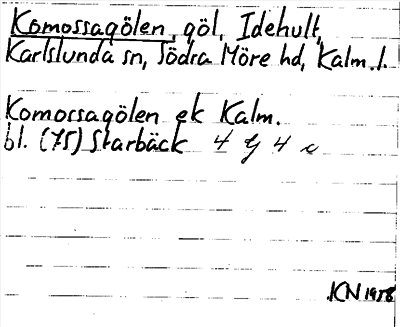 Komossagölen, göl, Idehult,
Karlslunda sn, Södra Möre hd, Kalm. l.
Komossagölen ek Kalm.
bl. (75) Starbäck 4 G 4 c
KN 1958